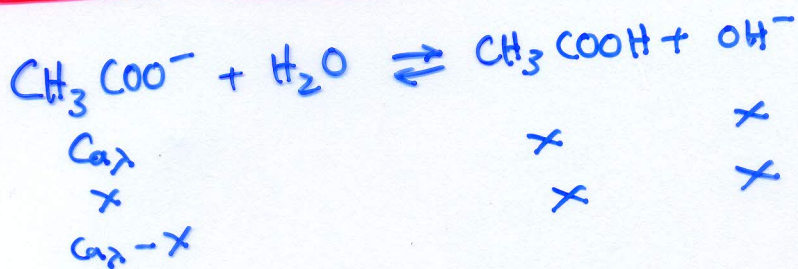 CH₃COO⁻ + H₂O ⇌ CH₃COOH + OH⁻
Cαλ x x
x x x
Cαλ - x